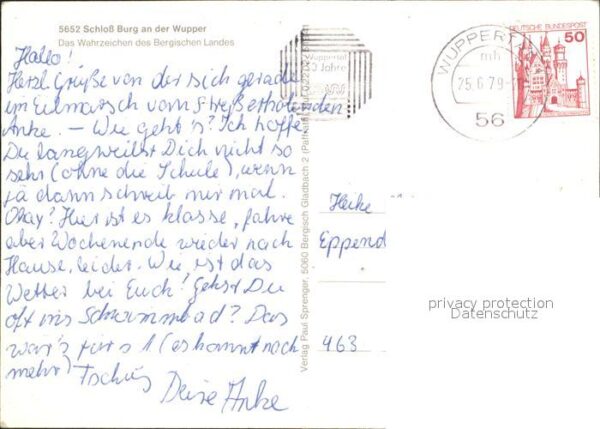 5652 Schloß Burg an der Wupper
Das Wahrzeichen des Bergischen Landes
Hallo!
Herzl. Grüße von der sich gerade
im Eilmarsch vom Streß erholenden
Anke. – Wie geht's? Ich hoffe
Du langweilst Dich nicht so
sehr (ohne die Schule), wenn
ja dann schreib mir mal.
Okay? Hier ist es klasse, fahre
aber Wochenende wieder nach
Hause, leider. Wie ist das
Wetter bei Euch? Gehst Du
oft ins Schwimmbad? Das
war's für's 1 (es kommt noch
mehr) Tschüs
Deine Anke
Verlag Paul Sprenger, 5060 Bergisch Gladbach 2
Wuppertal
50 Jahre
WUPPERTAL
mh
25.6.79
56
DEUTSCHE BUNDESPOST
50
Heike
Eppend
463
privacy protection
Datenschutz